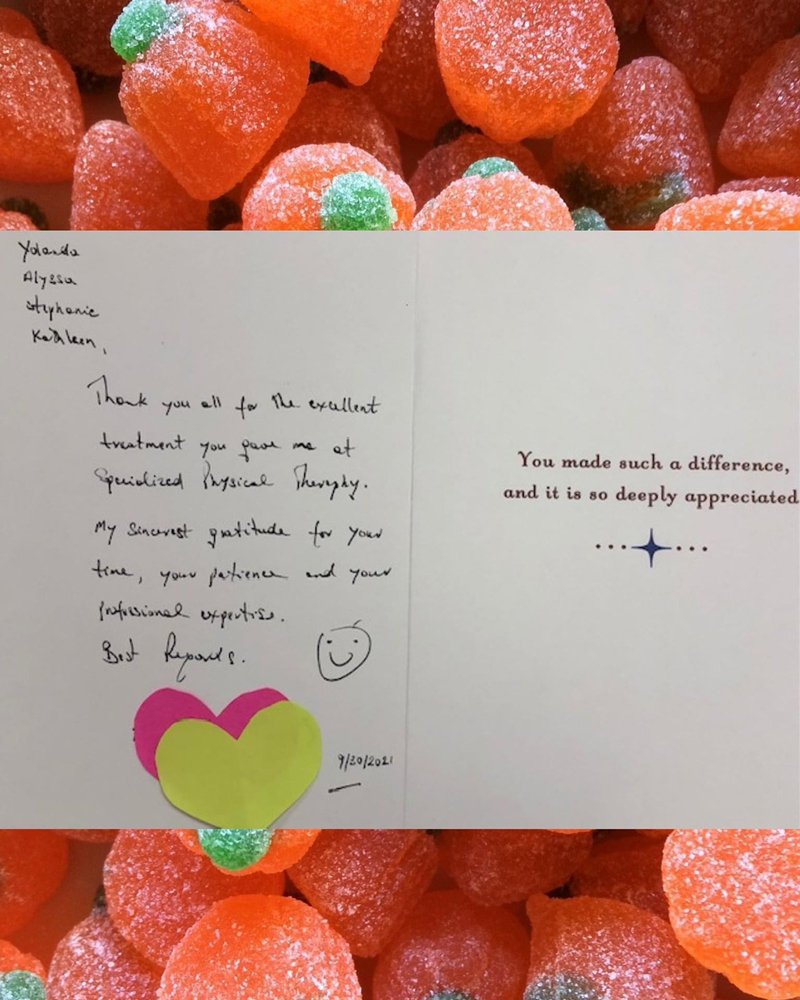 Yolanda
Alyssa
Stephanie
Kathleen,
Thank you all for the excellent
treatment you gave me at
Specialized Physical Theraphy.
My sincerest gratitude for your
time, your patience and your
professional expertise.
Best Regards.
9/30/2021
You made such a difference,
and it is so deeply appreciated